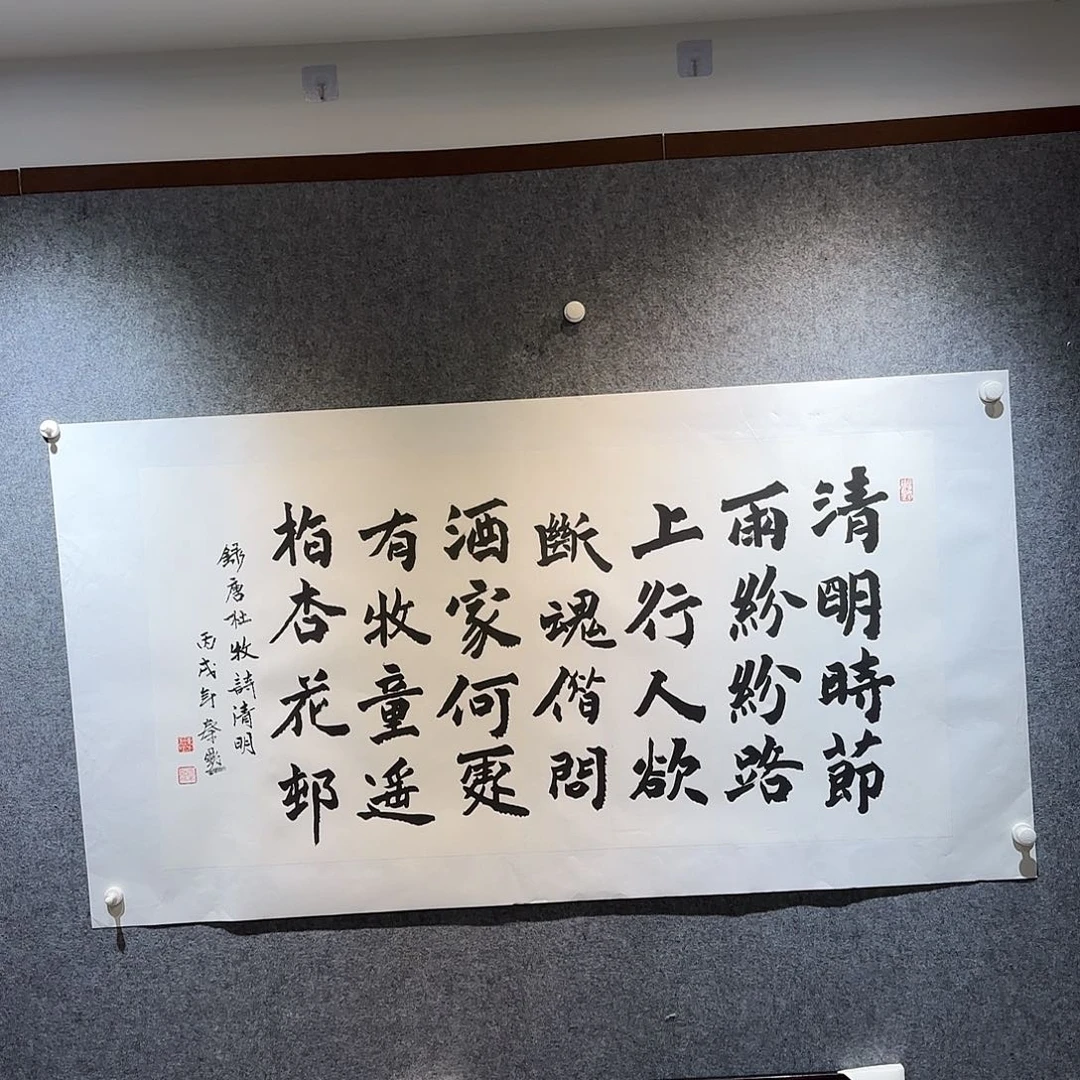 清明時節
雨紛紛路
上行人欲
斷魂借問
酒家何處
有牧童遥
指杏花邨
録唐杜牧詩清明
丙戌年